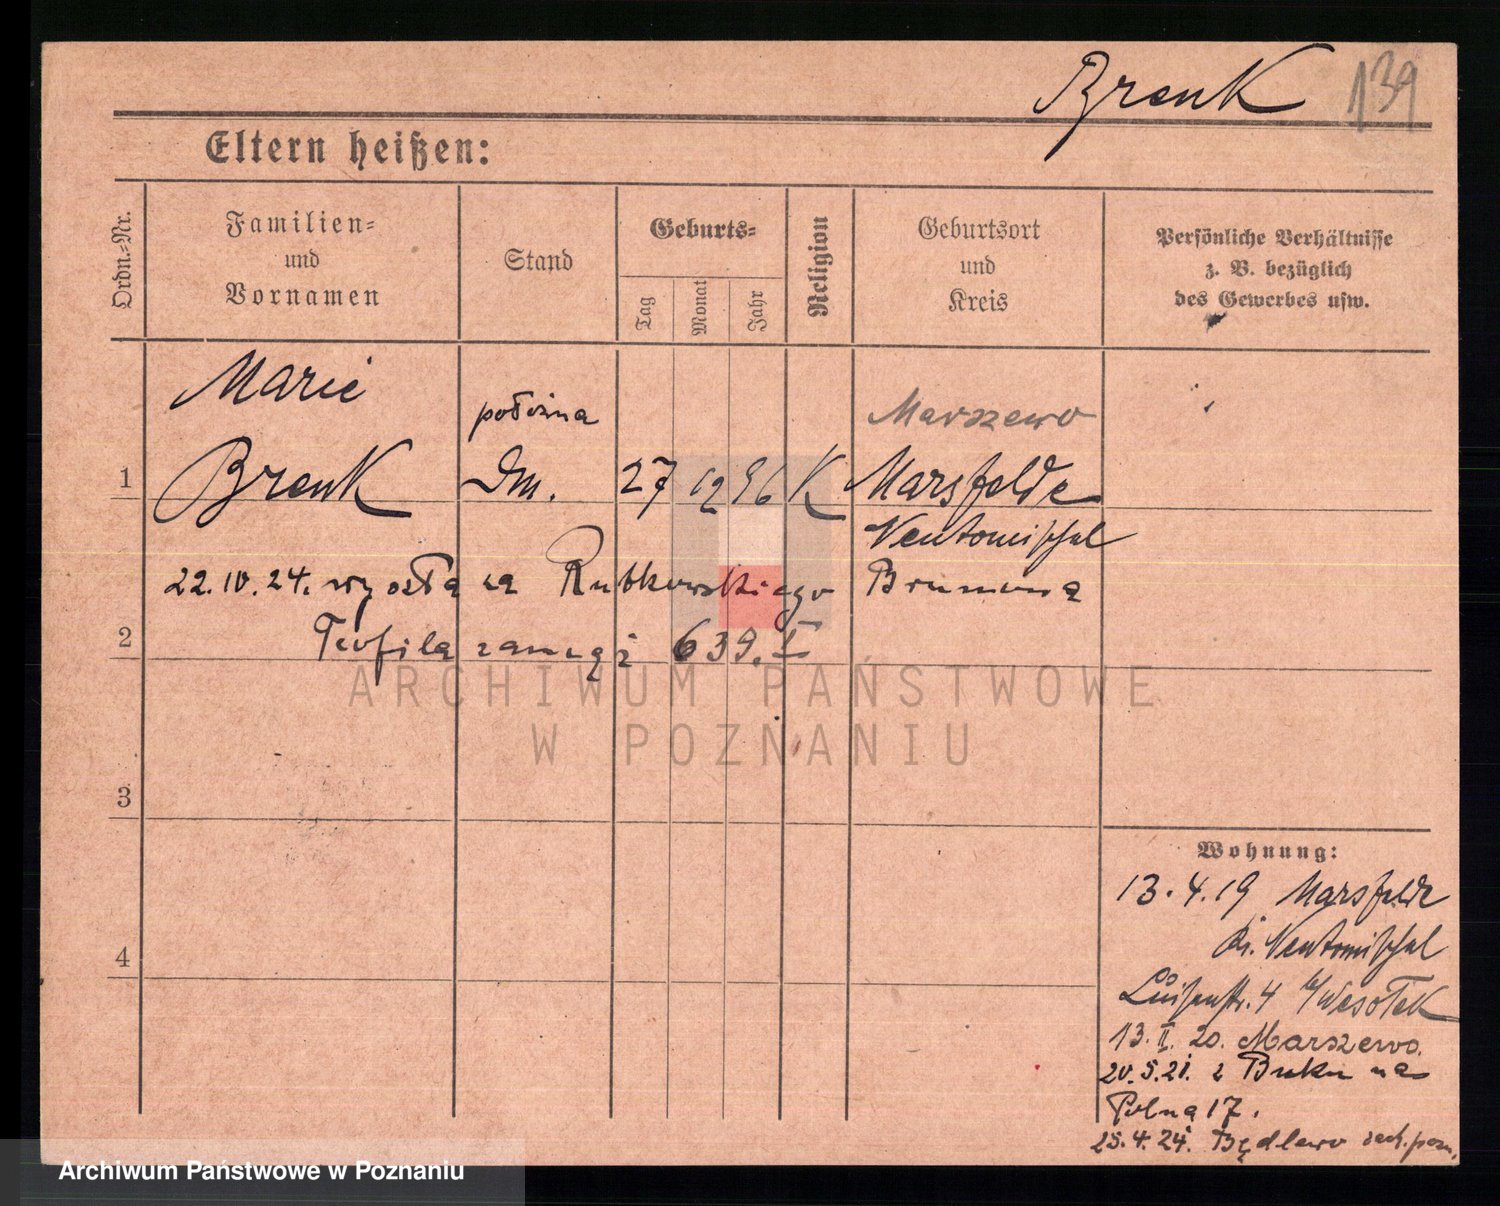 Brenk 139
Eltern heißen:
Ordn.-Nr.
Familien=
und
Vornamen
Stand
Geburts=
Tag
Monat
Jahr
Religion
Geburtsort
und
Kreis
Persönliche Verhältnisse
z. B. bezüglich
des Gewerbes usw.
Marie
położna
Marszewo
1 Brenk Dm. 27 12 96 K Marsfelde
Neutomischel
22.IV.24. wyszła za Rutkowskiego
2 Teofila zamąż 639. I
ARCHIWUM PAŃSTWOWE
W POZNANIU
3
4
Wohnung:
13.4.19 Marsfelde
Kr. Neutomischel
Luisenstr. 4 b/Wesołek
13.II.20. Marszewo.
20.5.21. z Buku na
Polną 17.
25.4.24. Będlewo zach. pozn.
Archiwum Państwowe w Poznaniu